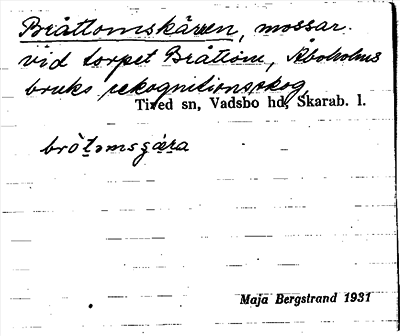 Bråttomskärren, mossar
vid torpet Bråttom, Åboholms
bruks rekognitionsskog
Tived sn, Vadsbo hd, Skarab. l.
bròt̲əmsʂæra
Maja Bergstrand 1931